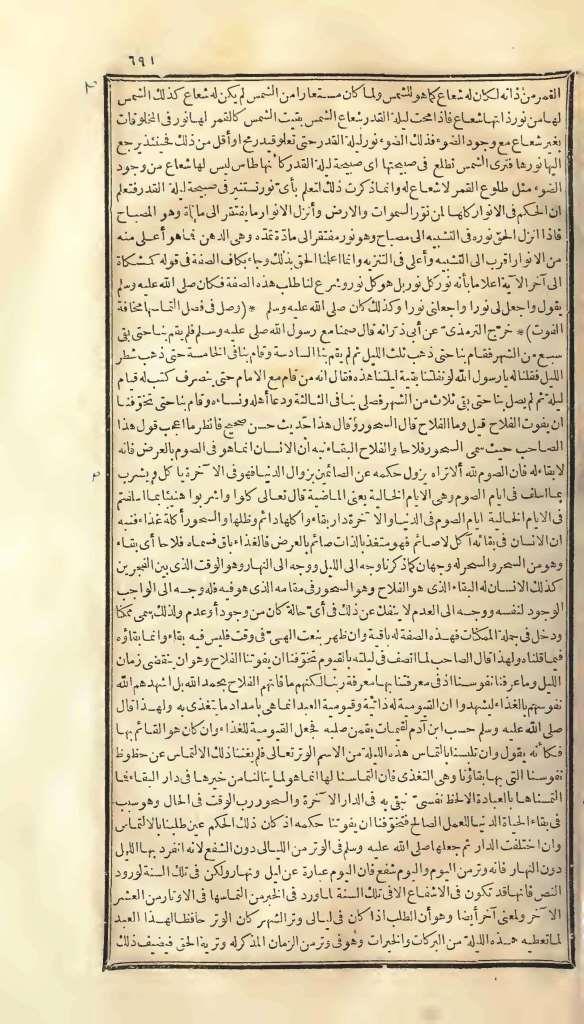 ٦٩١
القمر من ذاته لكان له شعاع كما هو للشمس ولما كان مستعارا من الشمس لم يكن له شعاع كذلك الشمس
لها من نور ذاتها شعاع فاذا محت ليلة القدر شعاع الشمس بقيت الشمس كالقمر لها نور فى المخلوقات
بغير شعاع مع وجود الضوء فذلك الضوء نور ليلة القدر حتى تعلو قيد رمح او أقل من ذلك فحينئذ يرجع
اليها نورها فترى الشمس تطلع فى صبيحتها اى صبيحة ليلة القدر كأنها طاس ليس لها شعاع من وجود
الضوء مثل طلوع القمر لا شعاع له وانما ذكرت ذلك لتعلم بأى نور تستنير فى صبيحة ليلة القدر فتعلم
ان الحكم فى الانوار كلها لمن نوّر السموات والارض وأنزل الانوار ما يفتقر الى مادّة وهو المصباح
فاذا انزل الحق نوره فى التشبيه الى مصباح وهو نور مفتقر الى مادّة تمدّه وهى الدهن فما هو أعلى منه
من الانوار اقرب الى التشبيه وأعلى فى التنزيه وانما اعلمنا الحق بذلك وجاء بكاف الصفة فى قوله كمشكاة
الى آخر الآية اعلاما بأنه نور كل نور بل هو كل نور وشرع لنا طلب هذه الصفة فكان صلى الله عليه وسلم
يقول واجعل لى نورا واجعلنى نورا وكذلك كان صلى الله عليه وسلم * (وصل فى فصل التماسها مخافة
الفوت) * خرّج الترمذىّ عن أبى ذر انه قال صمنا مع رسول الله صلى الله عليه وسلم فلم يقم بنا حتى بقى
سبع من الشهر فقام بنا حتى ذهب ثلث الليل ثم لم يقم بنا السادسة وقام بنا فى الخامسة حتى ذهب شطر
الليل فقلنا له يا رسول الله لو نفلتنا بقية ليلتنا هذه فقال انه من قام مع الامام حتى ينصرف كتب له قيام
ليلة ثم لم يصل بنا حتى بقى ثلاث من الشهر فصلى بنا فى الثالثة ودعا أهله ونساءه وقام بنا حتى تخوّفنا
ان يفوت الفلاح قيل وما الفلاح قال السحور وقال هذا حديث حسن صحيح فانظر ما اعجب قول هذا
الصاحب حيث سمى السحور فلاحا والفلاح البقاء تنبه أن الانسان انما هو فى الصوم بالعرض فانه
لا بقاء له فان الصوم لله ألا تراه يزول حكمه عن الصائمين بزوال الدنيا فهو فى الآخرة يأكل ويشرب
بما أسلف فى ايام الصوم وهى الايام الخالية يعنى الماضية قال تعالى كلوا واشربوا هنيئا بما اسلفتم
فى الايام الخالية ايام الصوم فى الدنيا والآخرة دار بقاء واكلها دائم وظلها والسحور أكلة غذاء فنبه
ان الانسان فى بقائه آكل لا صائم فهو متغذ بالذات صائم بالعرض فالغذاء باق فسماه فلاحا أى بقاء
وهو من السحر والسحر له وجهان كما ذكرنا وجه الى الليل ووجه الى النهار وهو الوقت الذى بين الفجرين
كذلك الانسان له البقاء الذى هو الفلاح وهو السحور فى مقامه الذى هو فيه فله وجه الى الواجب
الوجود لنفسه ووجه الى العدم لا ينفك عن ذلك فى أى حالة كان من وجود أو عدم ولذلك يسمى ممكنا
ودخل فى جملة الممكنات فهذه الصفة له باقية وان ظهر بنعت الهىّ فى وقت فليس فيه بقاء وانما بقاؤه
فيما قلناه ولهذا قال الصاحب لما اتصف فى ليلته بالقيوم تخوّفنا ان يفوتنا الفلاح وهو ان ينقضى زمان
الليل وما عرفنا نفوسنا اذ فى معرفتنا بها معرفة ربنا لكنهم ما فاتهم الفلاح بحمد الله بل اشهدهم الله
نفوسهم بالغذاء ليشهدوا ان القيومية له ذاتية وقيومية العبد انما هى بامداد ما يتغذى به ولهذا قال
صلى الله عليه وسلم حسب ابن آدم لقيمات يقمن صلبه فجعل القيومية للغذاء وان كان هو القائم بها
فكأنه يقول وان تلبسنا بالتماس هذه الليلة من الاسم الوتر تعالى فلم يغننا ذلك الالتماس عن حظوظ
نفوسنا التى بها بقاؤنا وهى التغذى فان التماسنا لها انما هو لما ينالنا من خيرها فى دار البقاء فما
التمسناها بالعبادة الا لحظ نفسىّ نبقى به فى الدار الآخرة والسحور رب الوقت فى الحال وهو سبب
فى بقاء الحياة الدنيا للعمل الصالح فتخوّفنا ان يفوتنا حكمه اذ كان ذلك الحكم عين طلبنا بالالتماس
وان اختلفت الدار ثم جعلها صلى الله عليه وسلم فى الوتر من الليالى دون الشفع لانه انفرد بها الليل
دون النهار فانه وتر من اليوم واليوم شفع فان اليوم عبارة عن ليل ونهار ولكن فى تلك السنة لورود
النص فانها قد تكون فى الاشفاع الا فى تلك السنة لما ورد فى الخبر من التماسها فى الاوتار من العشر
الآخر ولمعنى آخر أيضا وهو أن الطلب اذا كان فى ليالى وتر الشهر كان الوتر حافظا لهذا العبد
لما تعطيه هذه الليلة من البركات والخيرات وهو فى وتر من الزمان المذكر له وترية الحق فيضيف ذلك